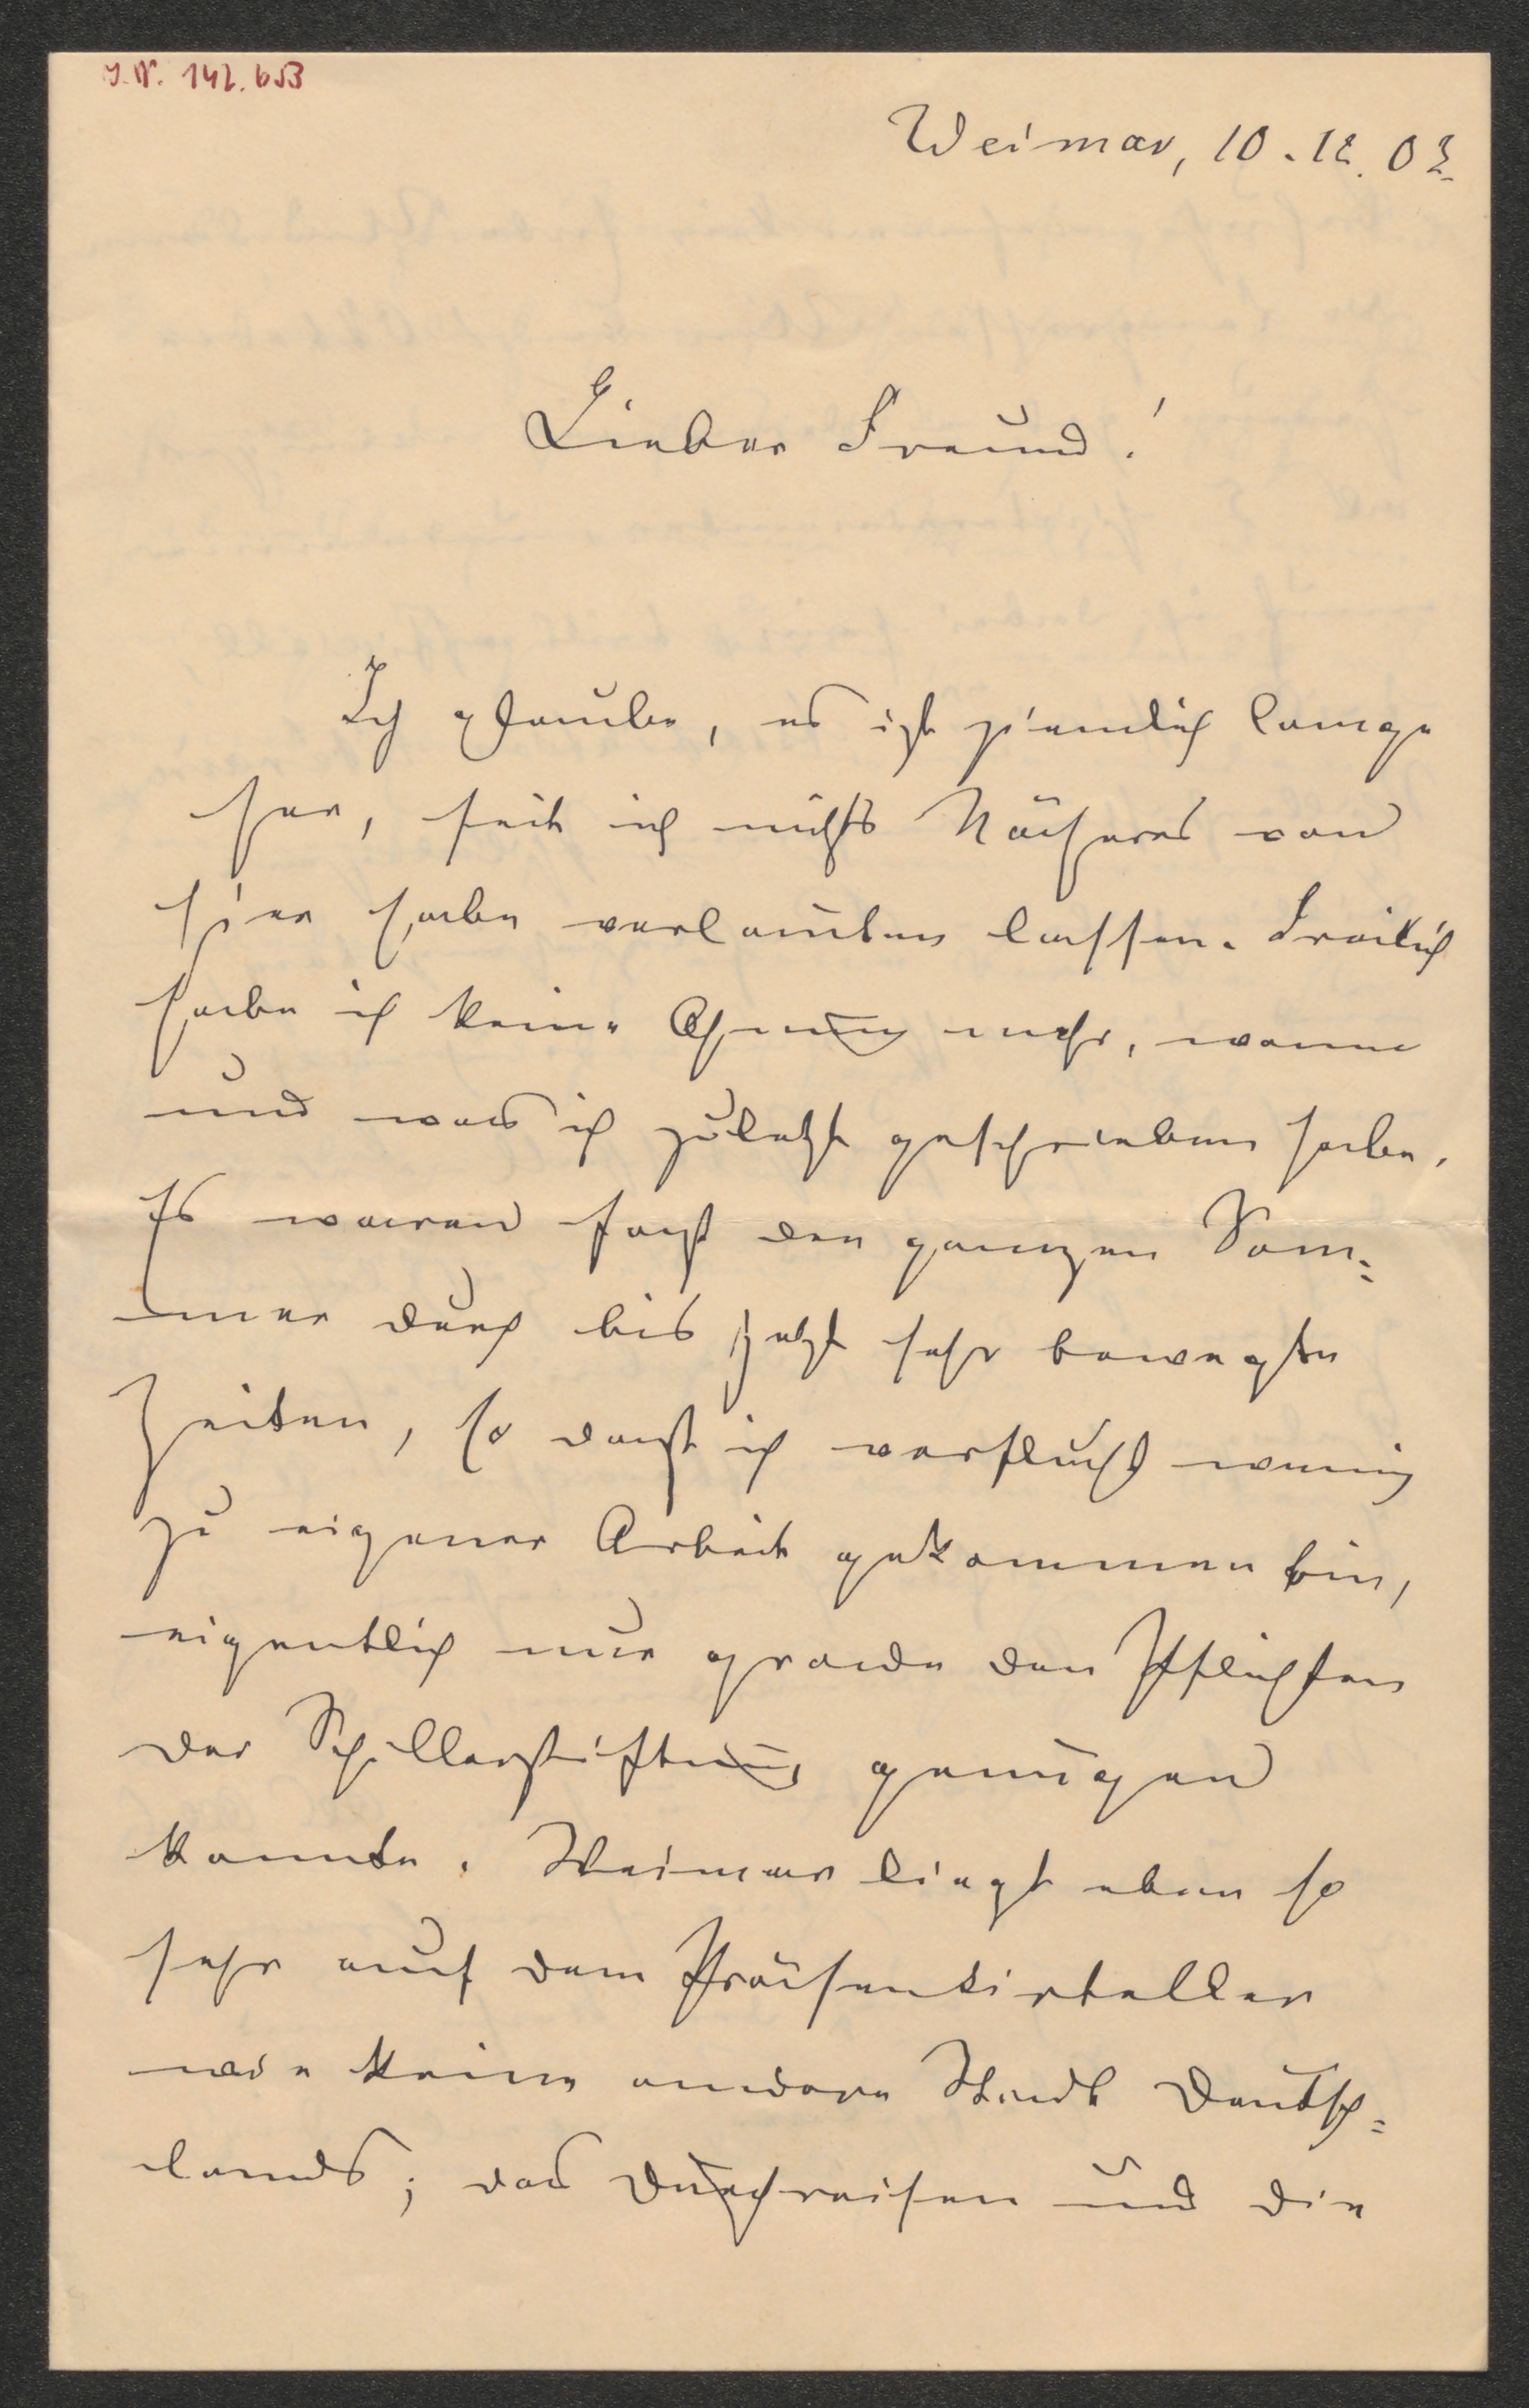 J.N. 142.653
Weimar, 10.12.02.
Lieber Freund!
Ich glaube, es ist ziemlich lange
her, seit ich nichts Näheres von
hier habe verlauten lassen. Freilich
habe ich keine Ahnung mehr, wann
und was ich zuletzt geschrieben habe.
Es waren fast den ganzen Som-
mer durch bis jetzt sehr bewegte
Zeiten, so dasz ich verflucht wenig
zu eigener Arbeit gekommen bin,
eigentlich nur grade den Pflichten
der Schillerstiftung genügen
konnte. Weimar liegt eben so
sehr auf dem Präsentirteller
wie keine andere Stadt Deutsch-
lands; das Durchreisen und die